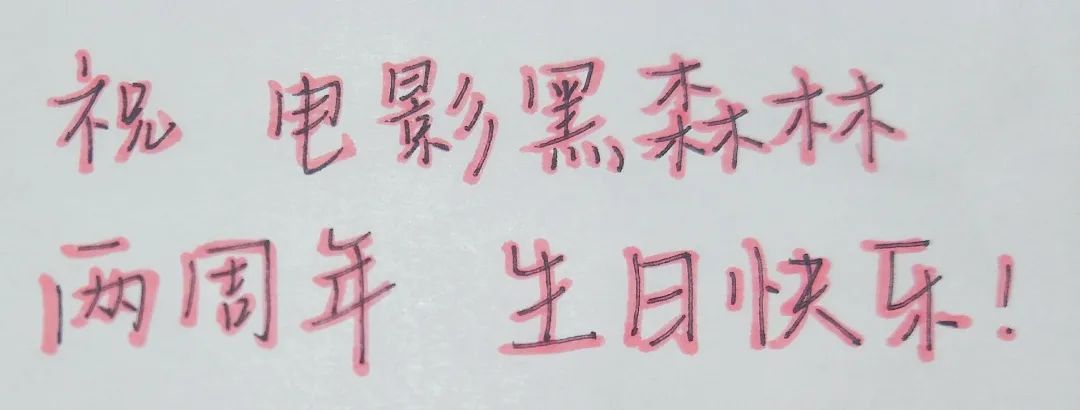 祝 电影黑森林
两周年 生日快乐!